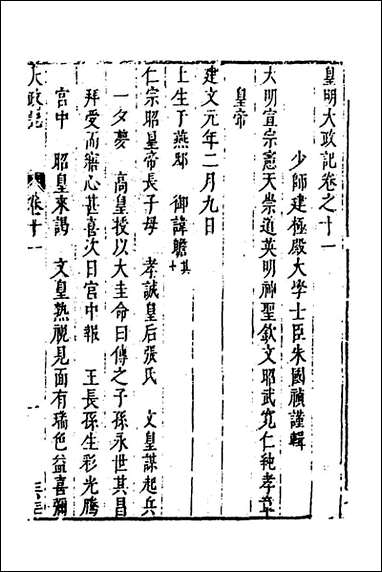 皇明大政記卷之十一
少師建極殿大學士臣朱國禎謹輯
大明宣宗憲天崇道英明神聖欽文昭武寬仁純孝章
皇帝
建文元年二月九日
上生于燕邸 御諱瞻
仁宗昭皇帝長子母 孝誠皇后張氏 文皇謀起兵
一夕夢 高皇授以大圭命曰傳之子孫永世其昌
拜受而寤心甚喜次日宮中報 王長孫生彩光騰
宮中 昭皇來謁 文皇熟視見面有瑞色益喜彌
大政記 卷十一 一